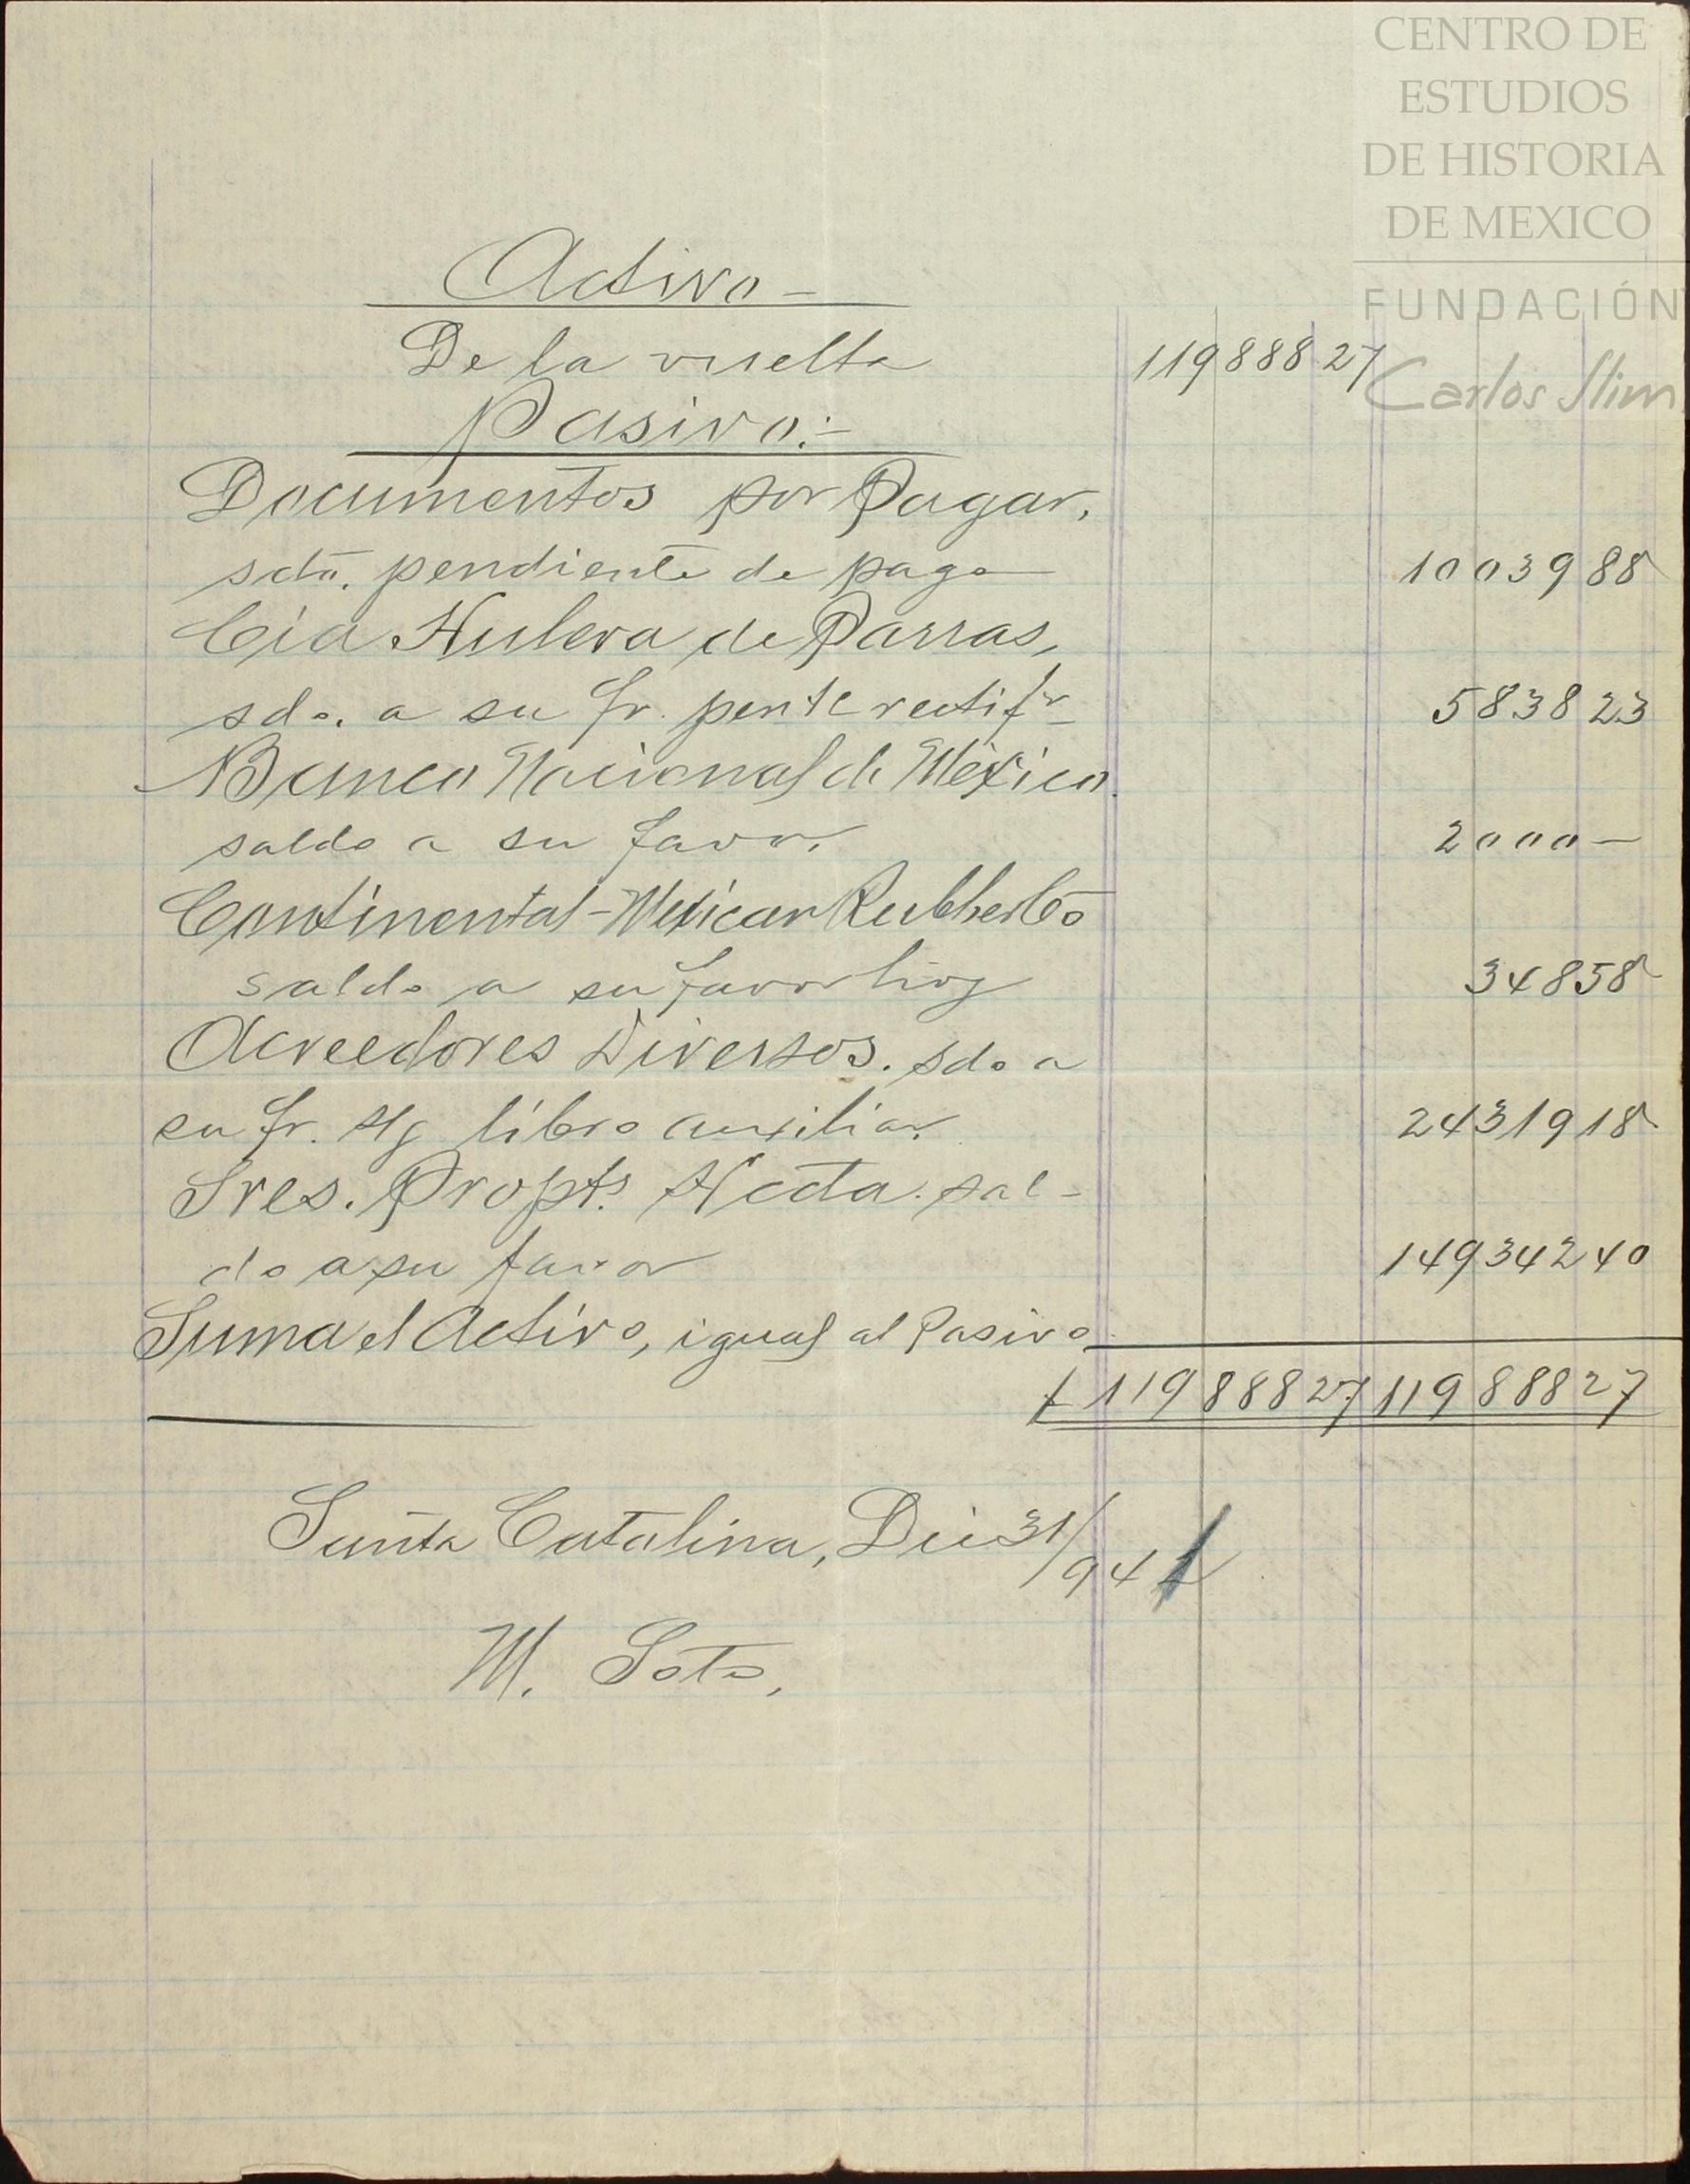 CENTRO DE
ESTUDIOS
DE HISTORIA
DE MEXICO
FUNDACIÓN
Carlos Slim
Activo—
De la vuelta 119888 27
Pasivo:—
Documentos por Pagar,
pendiente de pago 10039 88
Cia Hulera de Parras,
sdo. a su fr. pente rectifr 5838 23
Banco Nacional de México.
saldo a su favor. 2000 —
Continental-Mexican Rubber Co
saldo a su favor hoy 348 58
Acreedores Diversos. sdo a
su fr. sg libro auxiliar. 24319 18
Sres. Propts. Hcda. sal-
do a su favor 149342 40
Suma el Activo, igual al Pasivo
119888 27 119888 27
Santa Catalina, Dic 31/
M. Soto,